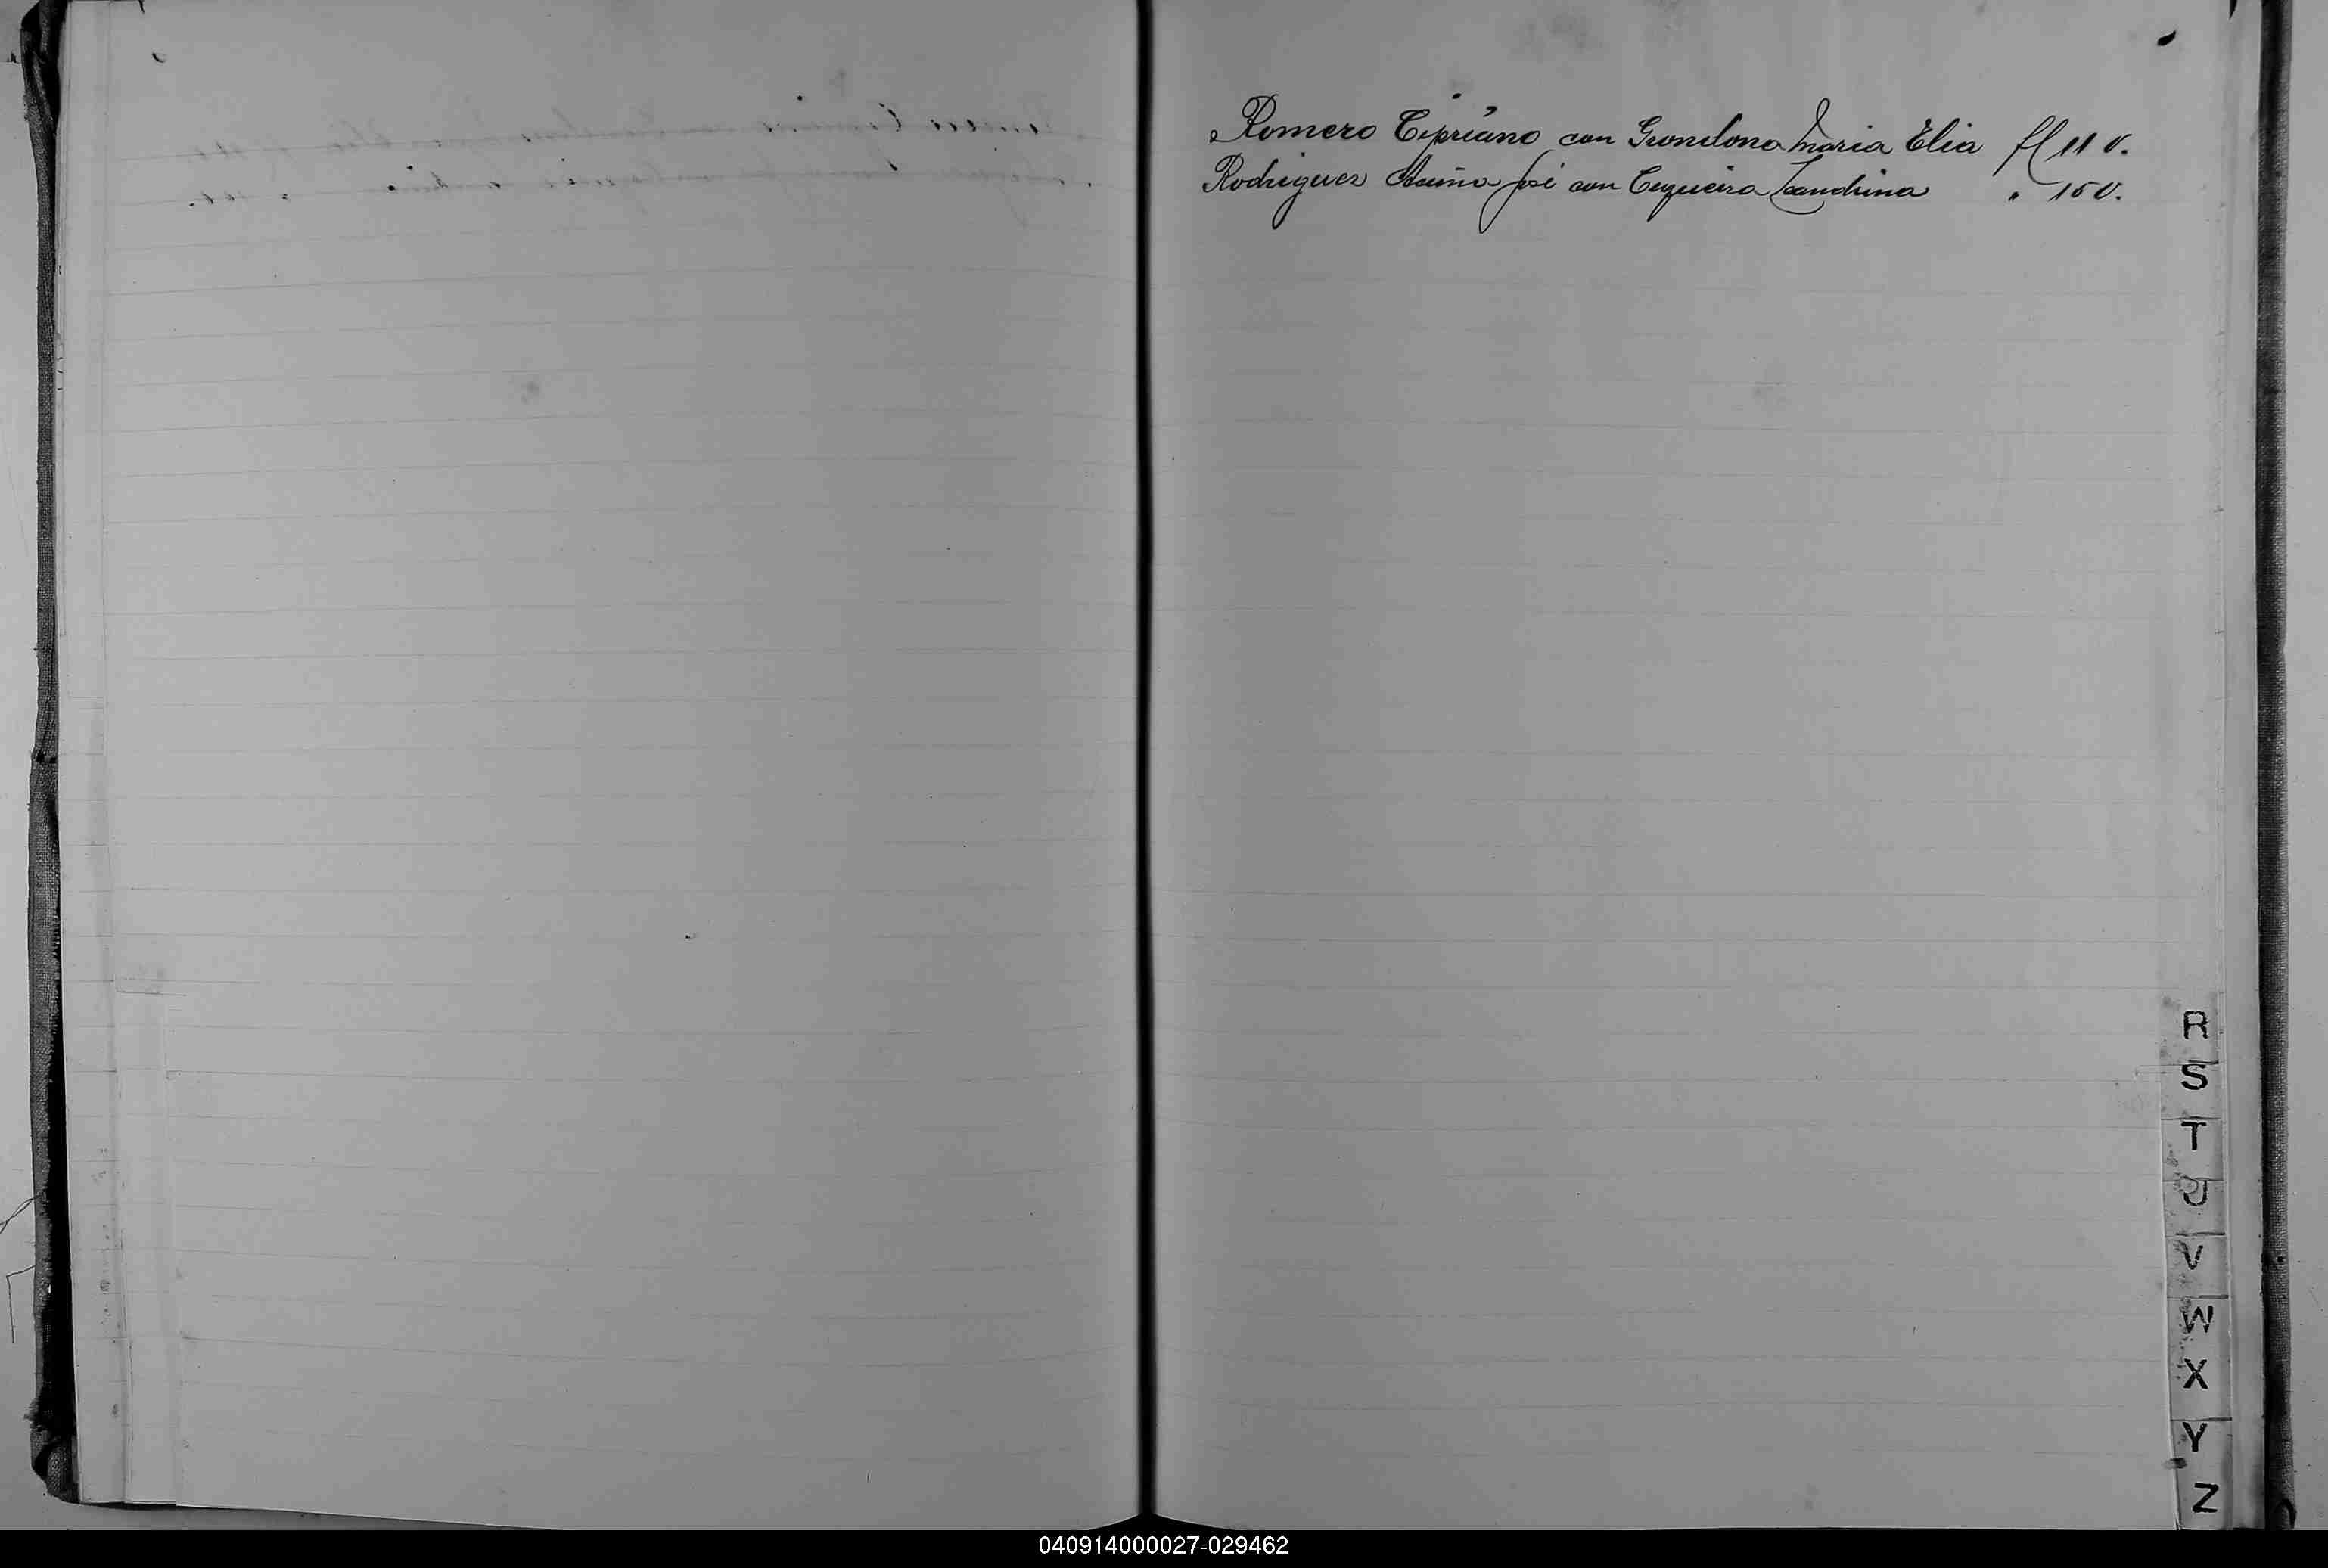 Romero Cipriano con Grondona Maria Elia fl 11 v.
Rodriguez José con Cequeira Leandrina " 15 v.
R
S
T
U
V
W
X
Y
Z
040914000027-029462